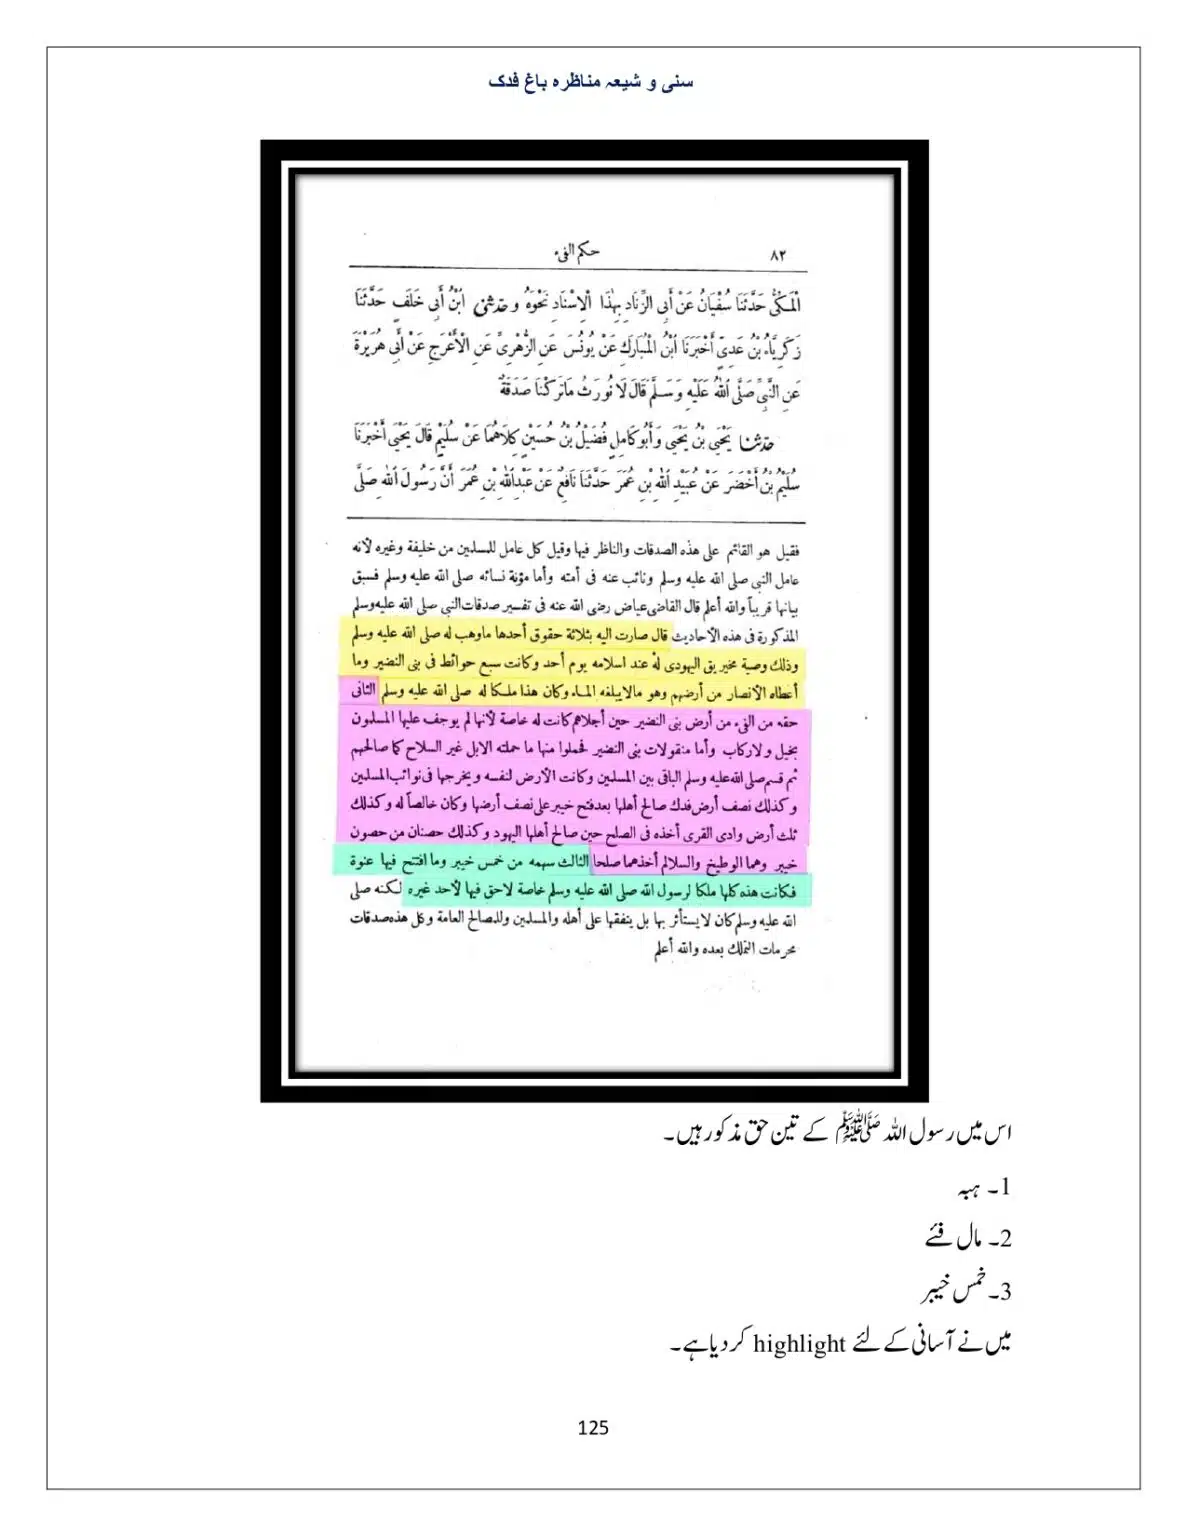 سنی و شیعہ مناظرہ باغ فدک
٨٢ حكم الفىء
الْمَكِّىُّ حَدَّثَنَا سُفْيَانُ عَنْ أَبِى الزِّنَادِ بِهٰذَا الْإِسْنَادِ نَحْوَهُ و حَدَّثَنِى ابْنُ أَبِى خَلَفٍ حَدَّثَنَا
زَكَرِيَّاءُ بْنُ عَدِىٍّ أَخْبَرَنَا ابْنُ الْمُبَارَكِ عَنْ يُونُسَ عَنِ الزُّهْرِىِّ عَنِ الْأَعْرَجِ عَنْ أَبِى هُرَيْرَةَ
عَنِ النَّبِىِّ صَلَّى اللهُ عَلَيْهِ وَسَلَّمَ قَالَ لَا نُورَثُ مَا تَرَكْنَا صَدَقَةٌ
حَدَّثَنَا يَحْيَى بْنُ يَحْيَى وَأَبُو كَامِلٍ فُضَيْلُ بْنُ حُسَيْنٍ كِلَاهُمَا عَنْ سُلَيْمٍ قَالَ يَحْيَى أَخْبَرَنَا
سُلَيْمُ بْنُ أَخْضَرَ عَنْ عُبَيْدِ اللهِ بْنِ عُمَرَ حَدَّثَنَا نَافِعٌ عَنْ عَبْدِ اللهِ بْنِ عُمَرَ أَنَّ رَسُولَ اللهِ صَلَّى
فقيل هو القائم على هذه الصدقات والناظر فيها وقيل كل عامل للمسلمين من خليفة وغيره لأنه
عامل النبى صلى الله عليه وسلم ونائب عنه فى أمته وأما مؤنة نسائه صلى الله عليه وسلم فسبق
بيانها قريباً والله أعلم قال القاضى عياض رضى الله عنه فى تفسير صدقات النبى صلى الله عليه وسلم
المذكورة فى هذه الأحاديث قال صارت اليه بثلاثة حقوق أحدها ماوهب له صلى الله عليه وسلم
وذلك وصية مخيريق اليهودى له عند اسلامه يوم أحد وكانت سبع حوائط فى بنى النضير وما
أعطاه الأنصار من أرضهم وهو مالايبلغه الماء وكان هذا ملكا له صلى الله عليه وسلم الثانى
حقه من الفىء من أرض بنى النضير حين أجلاهم كانت له خاصة لأنها لم يوجف عليها المسلمون
بخيل ولاركاب وأما منقولات بنى النضير فحملوا منها ما حملته الابل غير السلاح كما صالحهم
ثم قسم صلى الله عليه وسلم الباقى بين المسلمين وكانت الأرض لنفسه ويخرجها فى نوائب المسلمين
وكذلك نصف أرض فدك صالح أهلها بعد فتح خيبر على نصف أرضها وكان خالصاً له وكذلك
ثلث أرض وادى القرى أخذه فى الصلح حين صالح أهلها اليهود وكذلك حصنان من حصون
خيبر وهما الوطيخ والسلالم أخذهما صلحا الثالث سهمه من خمس خيبر وما افتتح فيها عنوة
فكانت هذه كلها ملكا لرسول الله صلى الله عليه وسلم خاصة لاحق فيها لأحد غيره لكنه صلى
الله عليه وسلم كان لا يستأثر بها بل ينفقها على أهله والمسلمين وللمصالح العامة وكل هذه صدقات
محرمات التملك بعده والله أعلم
اس میں رسول اللہ ﷺ کے تین حق مذکور ہیں۔
1۔ ہبہ
2۔ مال فئے
3۔ خمس خیبر
میں نے آسانی کے لئے highlight کر دیا ہے۔
125